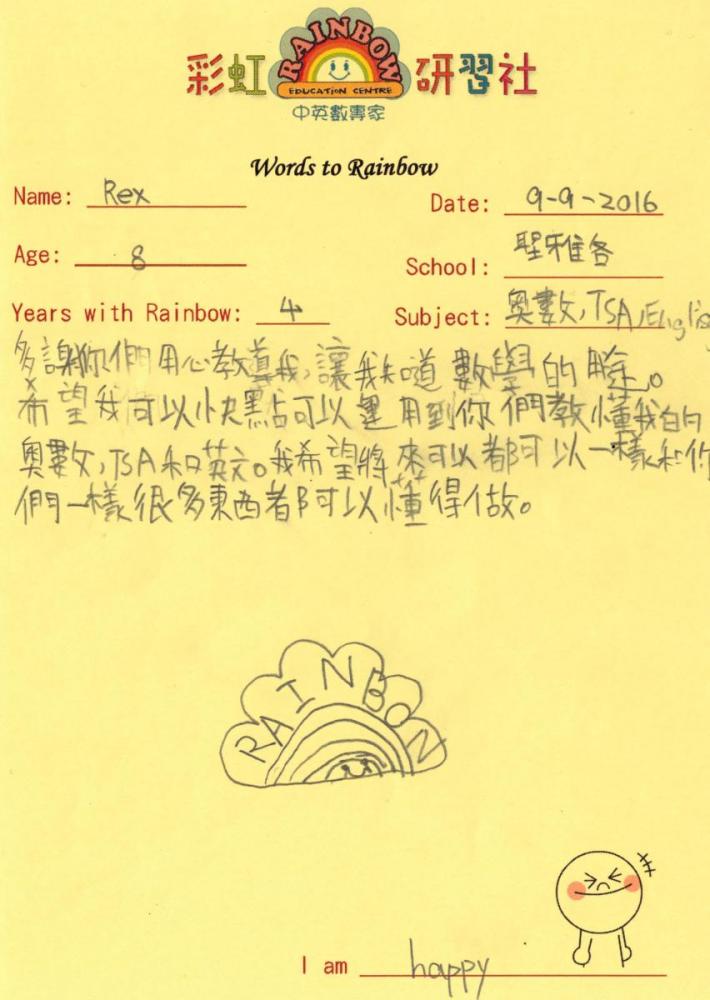 彩虹 RAINBOW 研習社
EDUCATION CENTRE
中英數專家
Words to Rainbow
Name: Rex
Date: 9-9-2016
Age: 8
School: 聖雅各
Years with Rainbow: 4
Subject: 奧數,TSA,Englis
多謝你們用心教導我,讓我知道數學的用途。
希望我可以快點可以運用到你們教懂我的
奧數,TSA和英文。我希望將來可以都可以一樣和你
們一樣很多東西都可以懂得做。
RAINBOW
I am happy